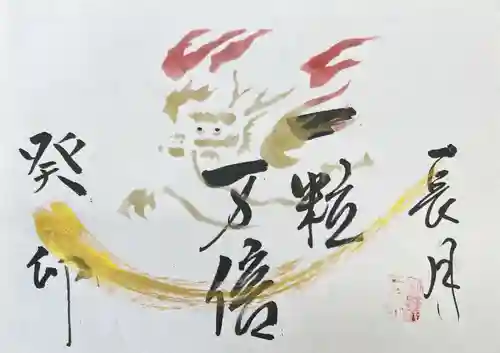 長月
一粒
万倍
癸卯